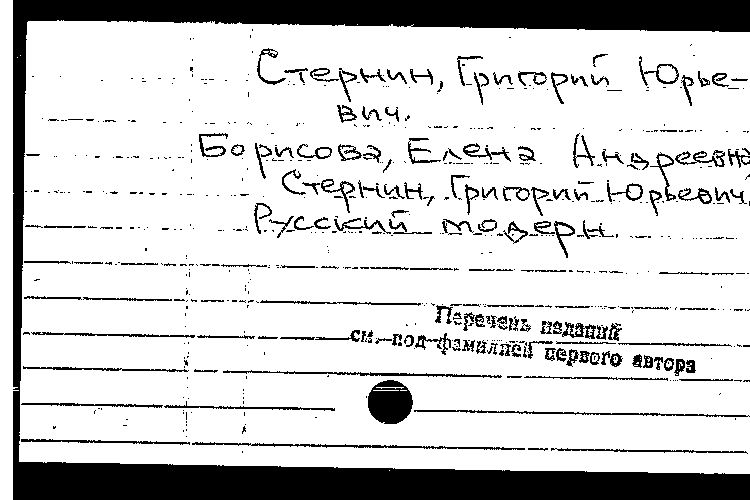 Стернин, Григорий Юрье-
вич.
Борисова, Елена Андреевна
Стернин, Григорий Юрьевич.
Русский модерн.
Перечень изданий
см. под фамилией первого автора